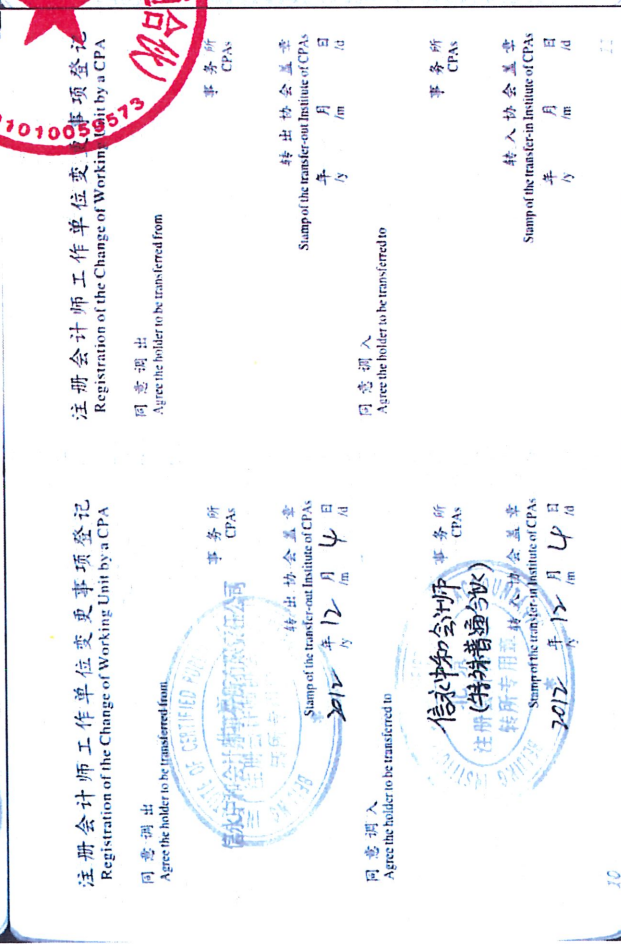 注册会计师工作单位变更事项登记
Registration of the Change of Working Unit by a CPA
同意调出
Agree the holder to be transferred from
信永中和会计师事务所有限责任公司
事务所
CPAs
转出协会盖章
Stamp of the transfer-out Institute of CPAs
2012年12月4日
/y /m /d
同意调入
Agree the holder to be transferred to
信永中和会计师
(特殊普通合伙)
事务所
CPAs
注册
转所专用章
转入协会盖章
Stamp of the transfer-in Institute of CPAs
2012年12月4日
/y /m /d
10
注册会计师工作单位变更事项登记
Registration of the Change of Working Unit by a CPA
同意调出
Agree the holder to be transferred from
事务所
CPAs
转出协会盖章
Stamp of the transfer-out Institute of CPAs
年 月 日
/y /m /d
同意调入
Agree the holder to be transferred to
事务所
CPAs
转入协会盖章
Stamp of the transfer-in Institute of CPAs
年 月 日
/y /m /d
11